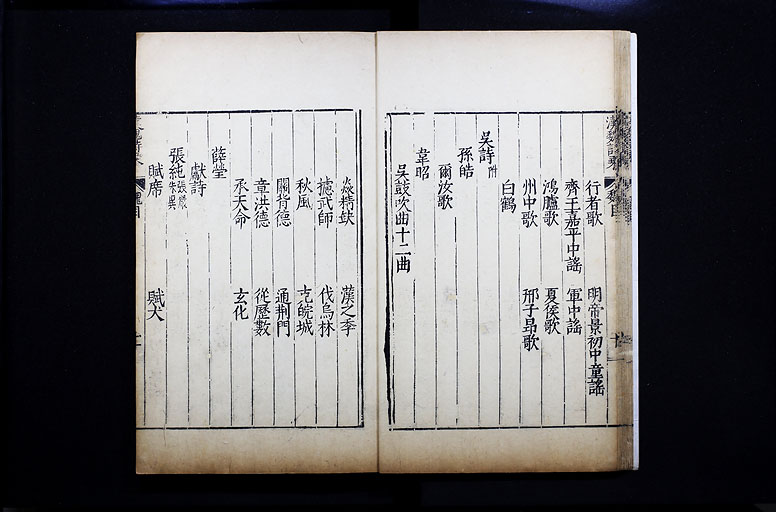 漢魏詩乘 魏目 十
行者歌 明帝景初中童謠
齊王嘉平中謠 軍中謠
鴻臚歌 夏侯歌
州中歌 邢子昂歌
白鶴
吳詩附
孫皓
爾汝歌
韋昭
吳鼓吹曲十二曲
炎精缺 漢之季
攄武師 伐烏林
秋風 克皖城
關背德 通荊門
章洪德 從歷數
承天命 玄化
薛瑩
獻詩
張純張儼朱異
賦席 賦犬
魏目